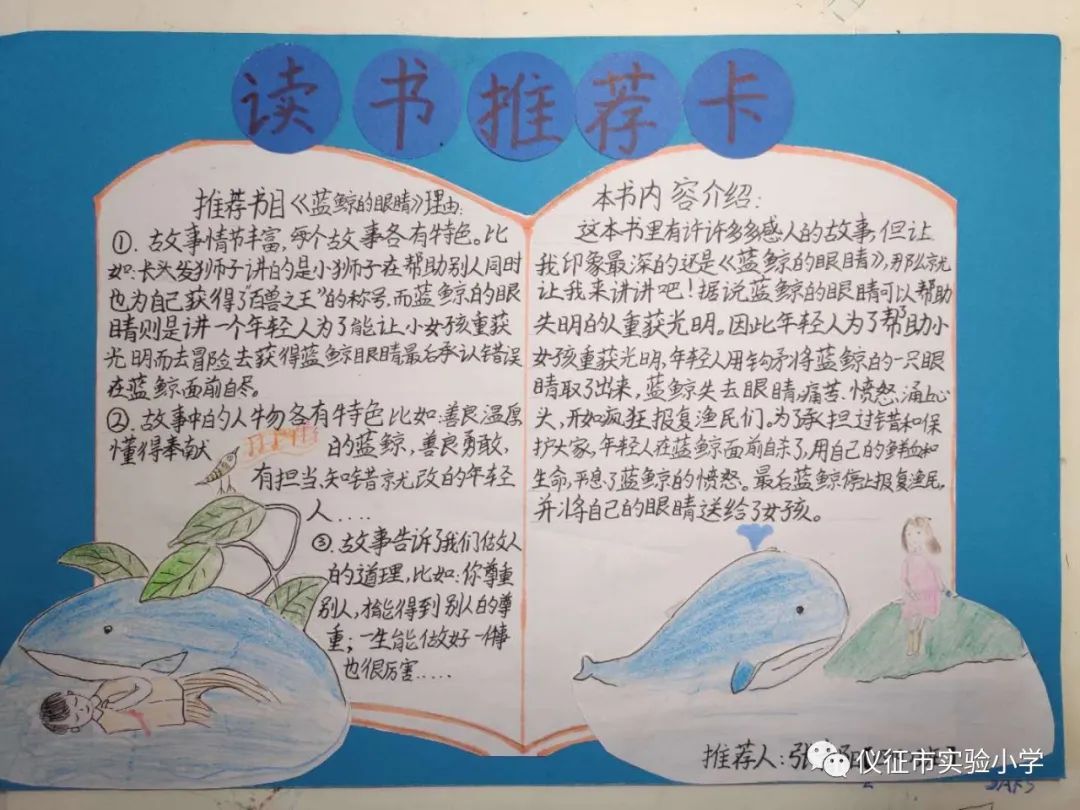 读书推荐卡
推荐书目《蓝鲸的眼睛》理由:
①.故事情节丰富,每个故事各有特色。比
如:卡头发狮子讲的是小狮子在帮助别人同时
也为自己获得了"百兽之王"的称号,而蓝鲸的眼
睛则是讲一个年轻人为了能让小女孩重获
光明而去冒险去获得蓝鲸眼睛最后承认错误
在蓝鲸面前自尽。
②.故事中的人物各有特色比如:善良温厚
懂得奉献的蓝鲸,善良勇敢,
有担当,知错就改的年轻
人.....
③.故事告诉了我们做人
的道理,比如:你尊重
别人,才能得到别人的尊
重;一生能做好一件事
也很厉害.....
本书内容介绍:
这本书里有许许多多感人的故事,但让
我印象最深的还是《蓝鲸的眼睛》,那么就
让我来讲讲吧!据说蓝鲸的眼睛可以帮助
失明的人重获光明。因此年轻人为了帮助小
女孩重获光明,年轻人用钩矛将蓝鲸的一只眼
睛取了出来,蓝鲸失去眼睛,痛苦、愤怒、涌上心
头,开始疯狂报复渔民们。为了承担过错和保
护大家,年轻人在蓝鲸面前自杀了,用自己的鲜血和
生命,平息了蓝鲸的愤怒。最后蓝鲸停止报复渔民,
并将自己的眼睛送给了女孩。
推荐人:张
仪征市实验小学